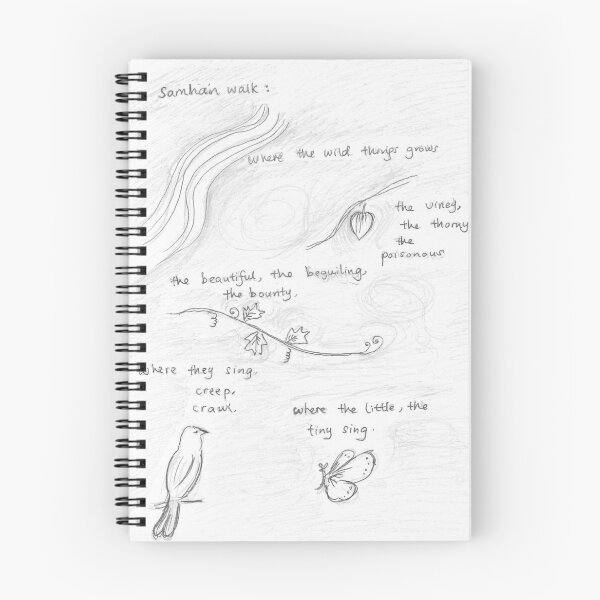 Samhain walk :
where the wild things grows
the vined,
the thorny
the
poisonous
the beautiful, the beguiling,
the bounty.
where they sing,
creep,
crawl.
where the little, the
tiny sing.